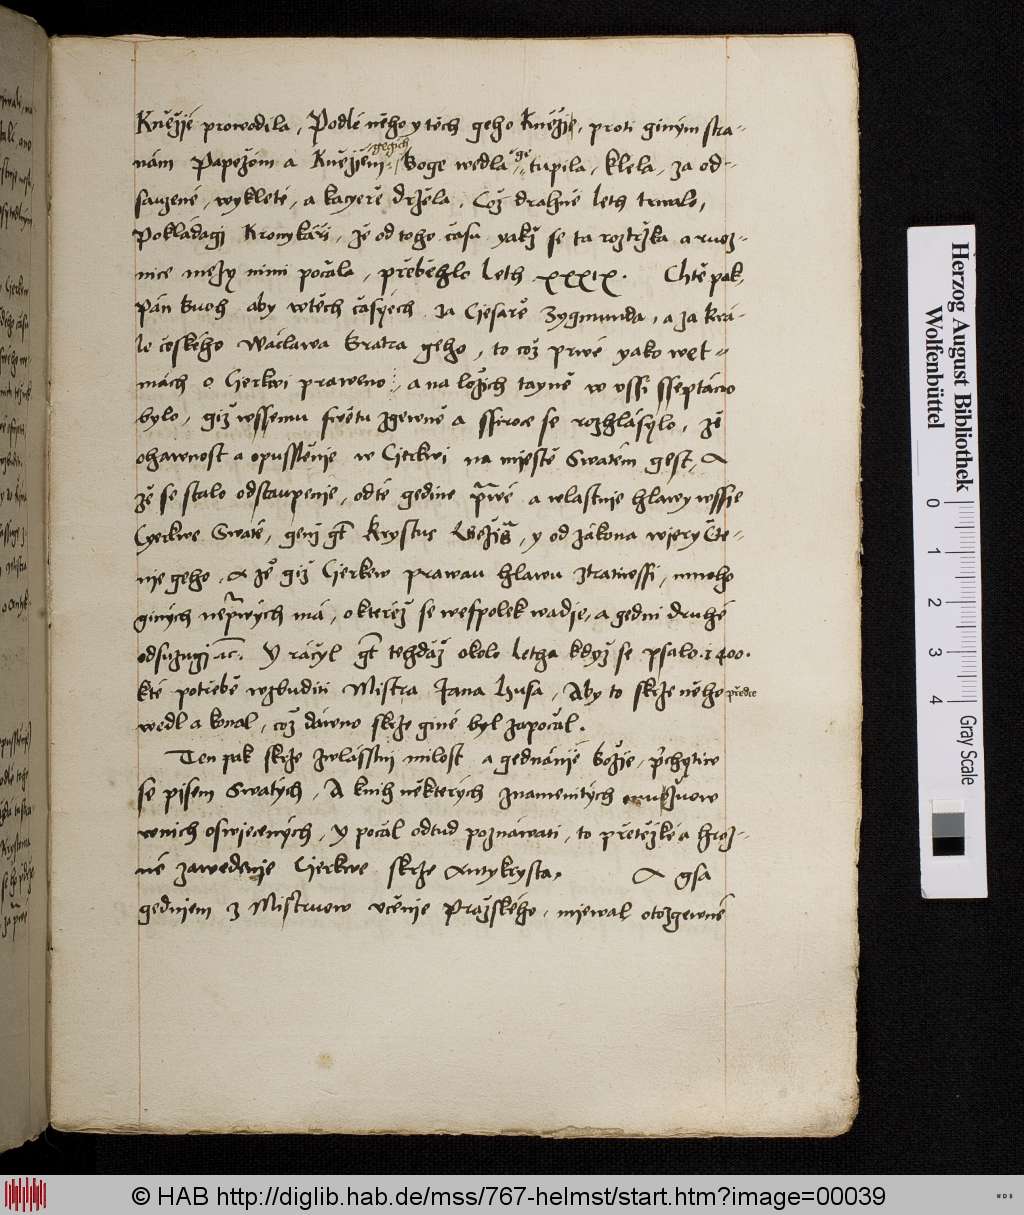 Kněžjé prowodila, Podlé něho y těch geho Kněžie, proti giným stra-
nám Papežóm a Kněžém gegich boge wedla, ge tupila, klela, za od-
sauzené, wykleté, a kacyeře držela. Což drahné leth trwalo,
Pokládagj Kronykáři, že od toho času yakž se ta roztržka a ruoz-
nice mezy nimi počala, přeběhlo leth xxxix. Chtě pak,
Pán Buoh aby wtěch časyéch za Cjesaře Zygmunda, a za krá-
le českého Wáclawa Bratra geho, to což prwé yako wet-
mách o Cjerkwi praweno, a na ložich tayně w ussi sseptáno
bylo, giž wssemu swětu zgewně a ssiroce se rozhlásylo, že
ohawnost a opusstěnje w Cjerkwi na mjestě Swatém gest, A
že se stalo odstaupenje, od té gediné prwé a wlastnje hlawy wssie
Cyerkwe Swaté, genž gt Krystus Ježiš, y od zákona wjery Čte-
nje geho, A že giž Cjerkew prawau hlawu ztratiwssi, mnoho
giných neprwých má, o kteréž se wespolek wadje, a gedni druhé
odsuzugj ac. Y ráčyl gt tehdáž okolo letha když se psalo .1400.
kté potřebě wzbuditi Mistra Jana Husa, Aby to skrze něho předce
wedl a konal, což dáwno skrze giné byl započal.
Ten pak skrze zwlásstnj milost a gednánjé božie, přchytiw
se pisem Swatych, A knih některých znamenitých
wnich oswjecených, Y počal odtud poznáwati, to přetěžké a hroz-
né zawedenje Cjerkwe skrze Antykrysta, A gsa
gednjem z Mistruow učenje Pražského, mjewal otozgewné
Herzog August Bibliothek
Wolfenbüttel
0 1 2 3 4
Gray Scale
© HAB http://diglib.hab.de/mss/767-helmst/start.htm?image=00039
WDB